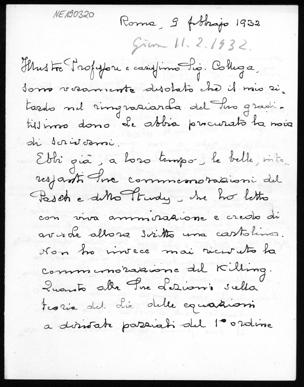 NEA50320
Roma, 9 febbraio 1932
Giun 11.2.1932.
Illustre Professore e carissimo Sig. Collega,
sono veramente desolato che il mio ri-
tardo nel ringraziarLa del Suo gradi-
tissimo dono Le abbia procurato la noia
di scrivermi.
Ebbi già, a loro tempo, le belle, inte-
ressanti Sue commemorazioni del
Pasch e dello Study, che ho letto
con viva ammirazione e credo di
averLe allora scritto una cartolina.
Non ho invece mai ricevuto la
commemorazione del Killing.
Quanto alle Sue Lezioni sulla
teoria del Lie delle equazioni
a derivate parziali del 1° ordine